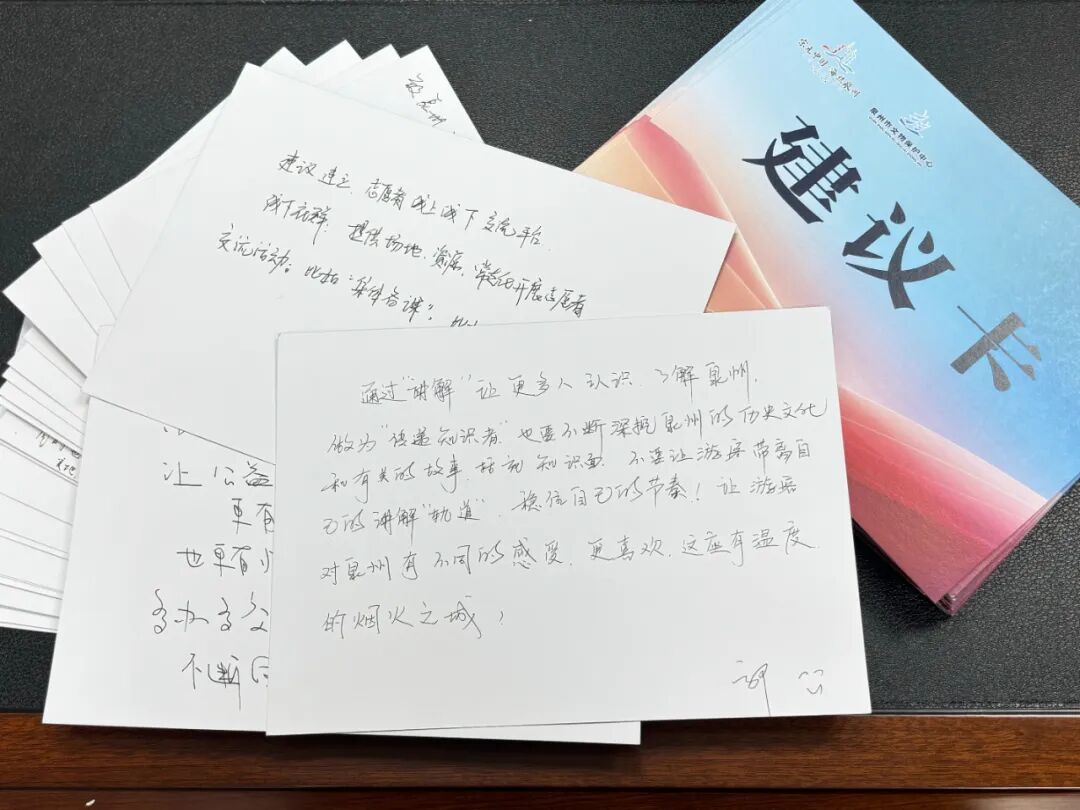 建议卡
宋元中国 海丝泉州
泉州市文物保护中心
建议建立志愿者线上线下交流平台.
线下社群: 提供场地、资源, 常态化开展志愿者
交流活动; 比如"集体备课";
通过"讲解"让更多人认识、了解泉州,
做为"传递知识者"也要不断深挖泉州的历史文化
和有关的故事, 知识面. 不要让游客带离自
己的讲解"轨道", 稳住自己的节奏! 让游客
对泉州有不同的感受, 更喜欢, 这座有温度
的烟火之城!
让公益
更有
也更有
多办多
不断